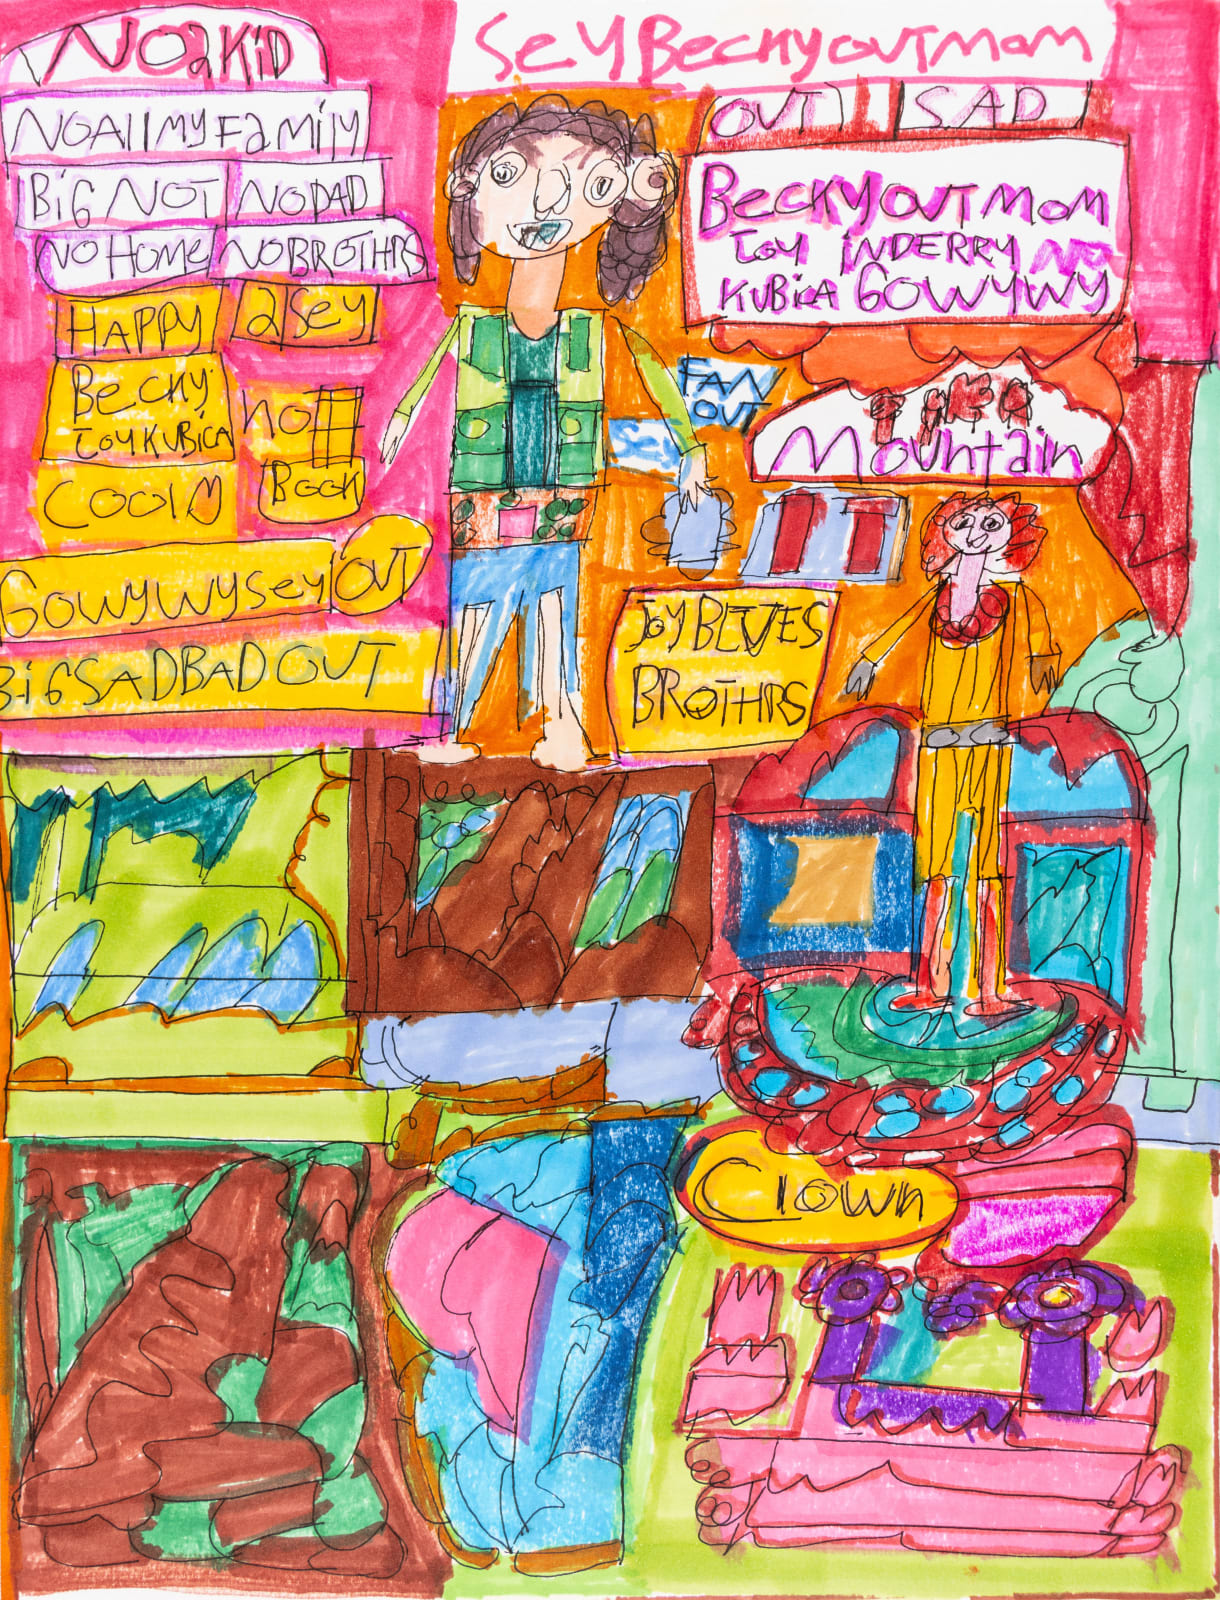 NO2KID
SEYBeckyOUTMOM
NOAllMYFaMily
BiG NOT
NODAD
NO HOME
NOBROTHRS
HAPPY
2SEY
Becky
JOYKUBiCA
NOT
COOl
BOOK
GOWYWYSEY
OUT
BiGSADBADOUT
OUT
SAD
BeckyOUTMOM
JOY iNDERRY NO
KUBiCA GOWYWY
FAN
OUT
SEY
MOUNtain
JOY BLUES
BROTHRS
Clown